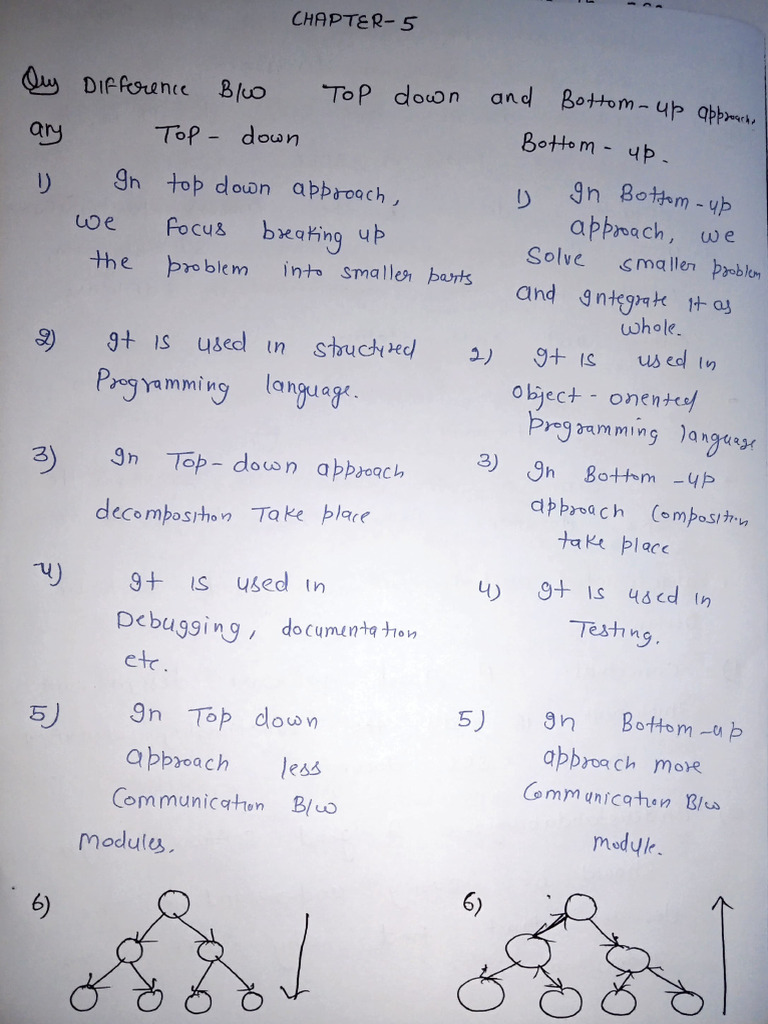 CHAPTER-5
Ques Difference B/w Top down and Bottom-up approach.
ans Top-down
Bottom-up.
1) In top down approach,
we focus breaking up
the problem into smaller parts
1) In Bottom-up
approach, we
solve smaller problem
and Integrate it as
whole.
2) It is used in structured
Programming language.
2) It is used in
object-oriented
programming language
3) In Top-down approach
decomposition Take place
3) In Bottom-up
approach composition
take place
4) It is used in
Debugging, documentation
etc.
4) It is used in
Testing.
5) In Top down
approach less
Communication B/w
Modules.
5) In Bottom-up
approach more
Communication B/w
module.
6)
6)